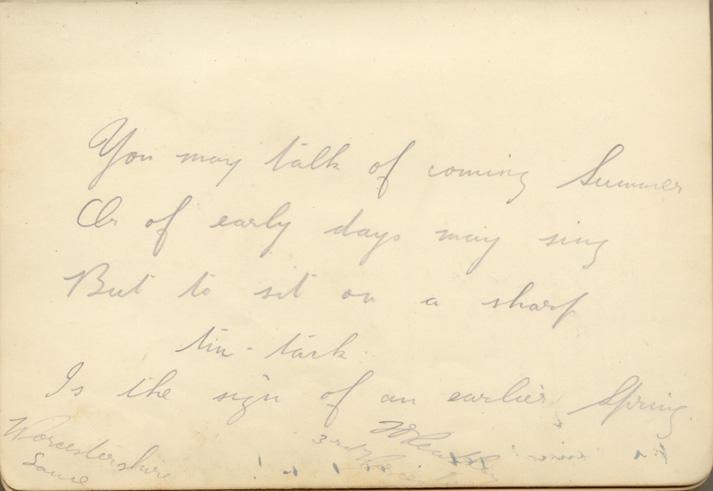 You may talk of coming Summer
Or of early days may sing
But to sit on a sharp
tin-tack
Is the sign of an earlier Spring.
Worcestershire
Sauce
3rd